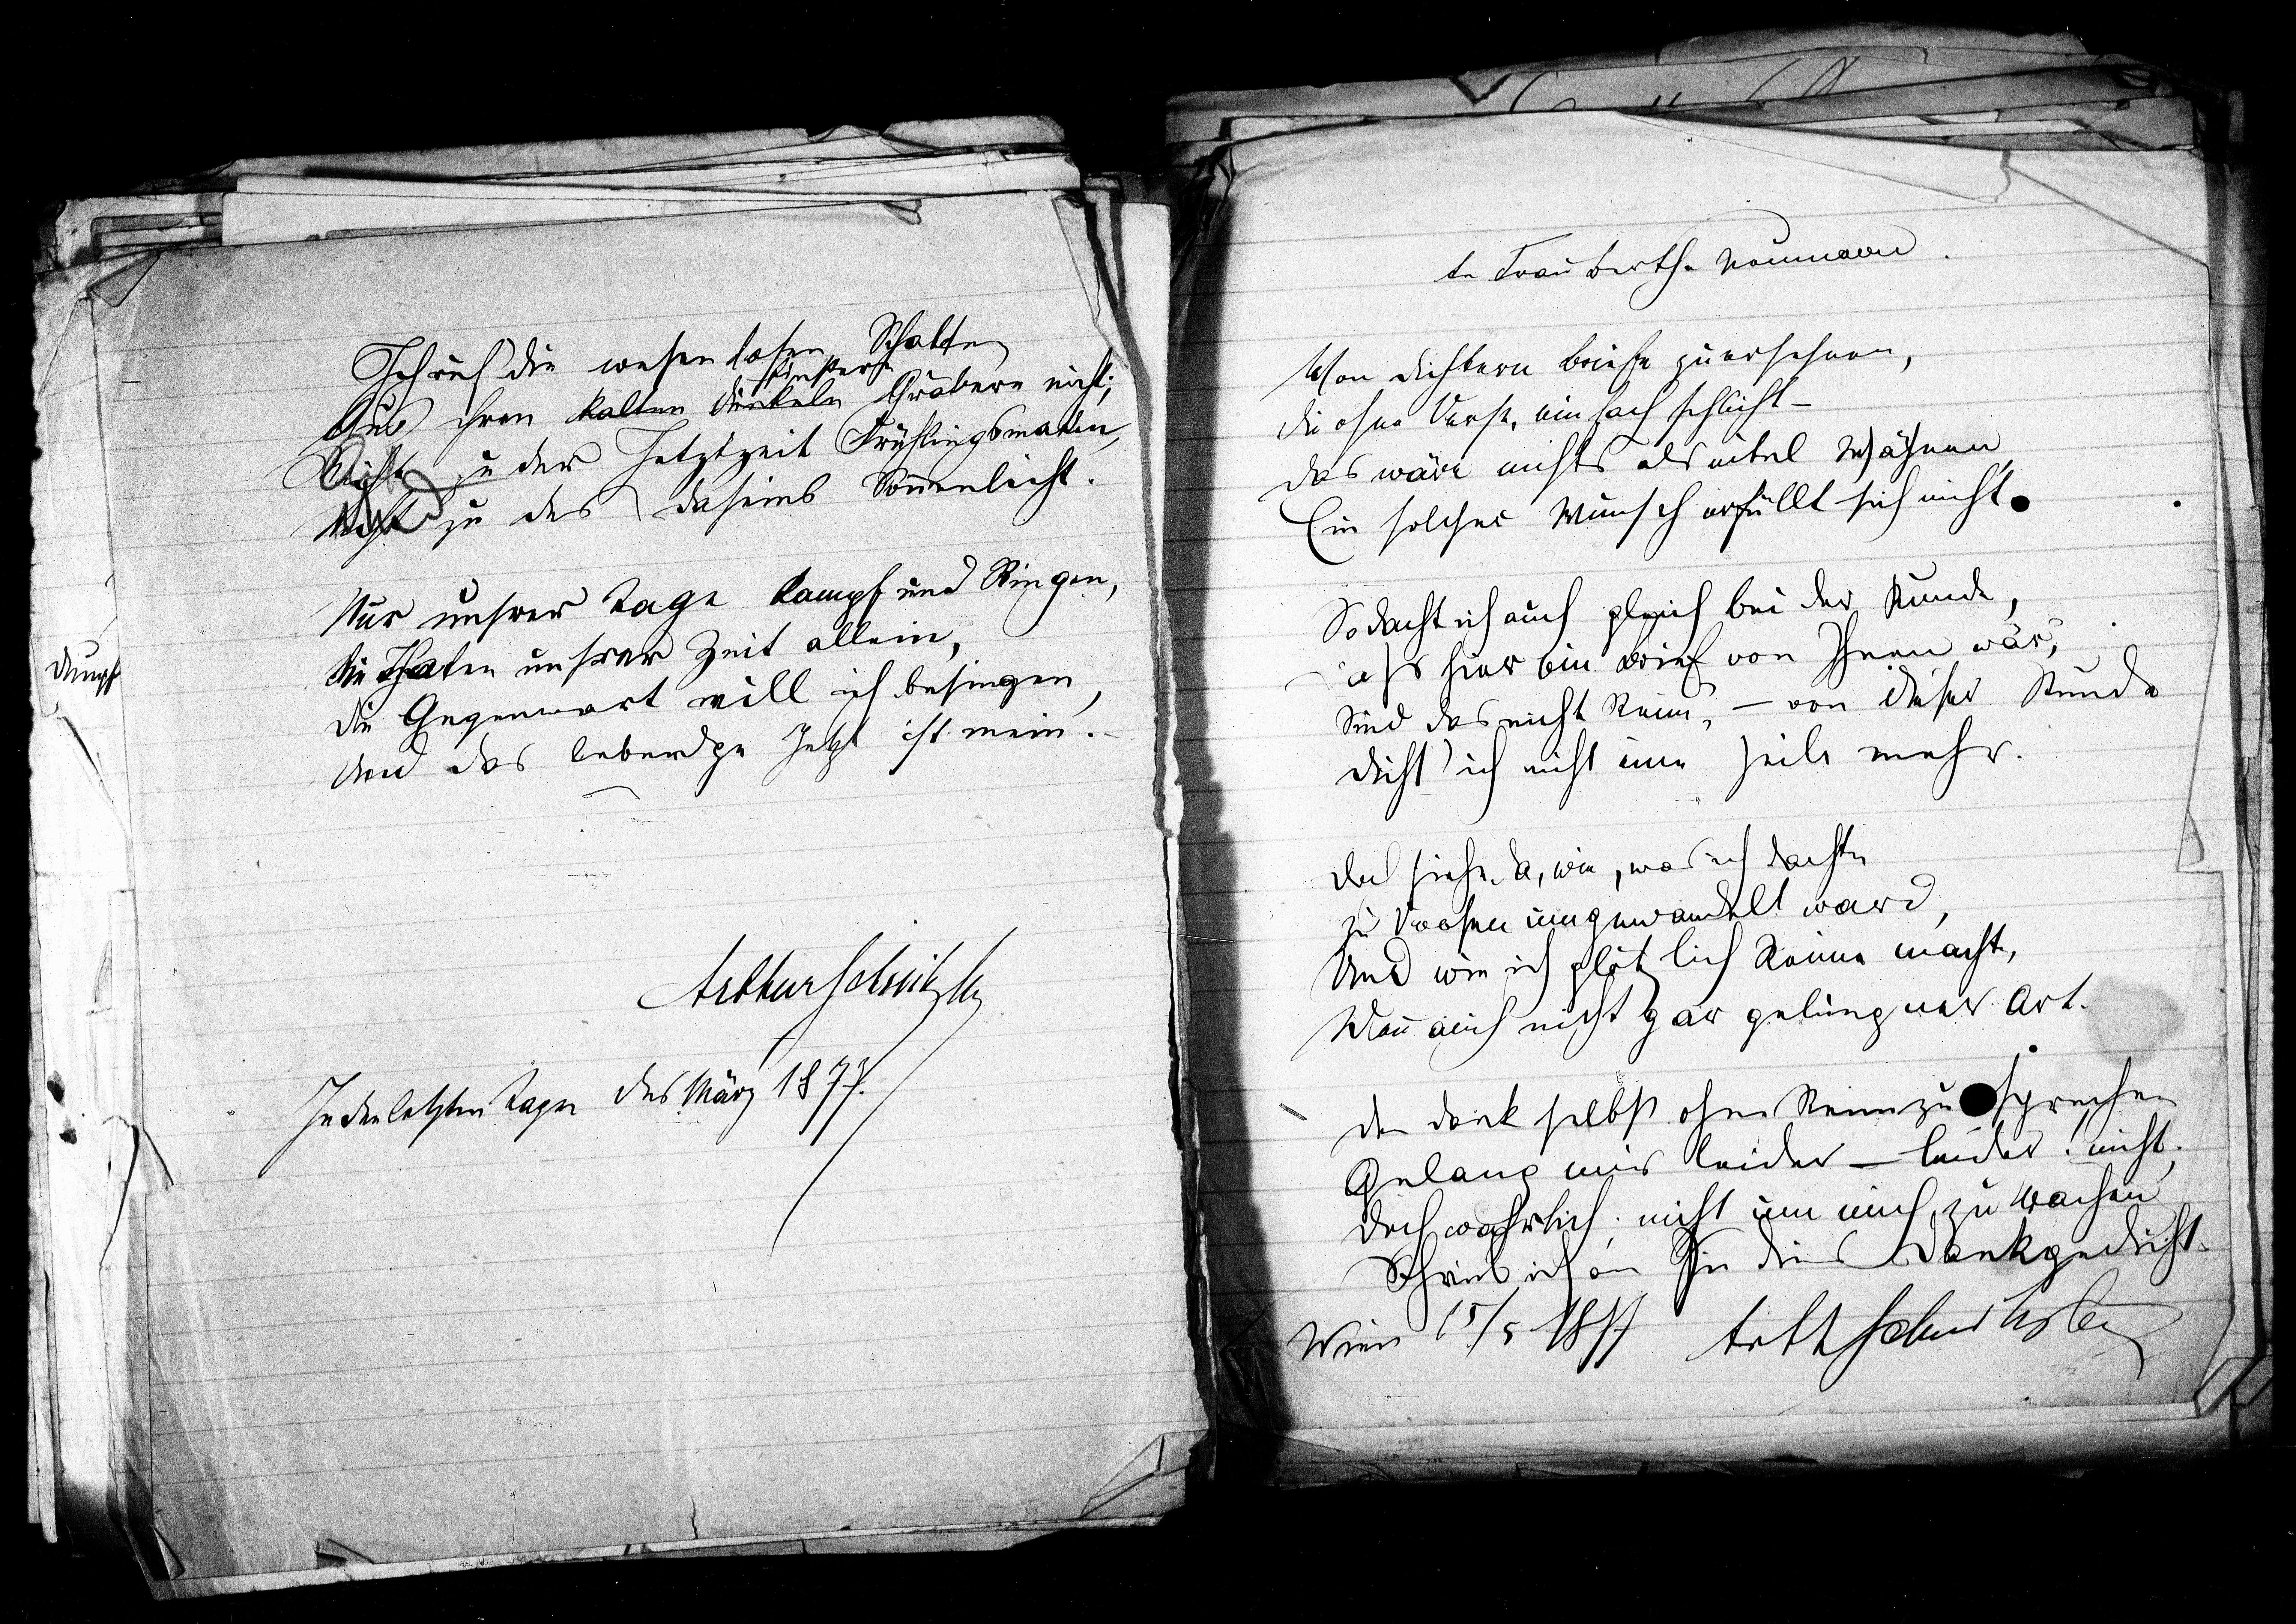 Dumpf
Ich ruf' die wesenlosen Schatten
finstern
Aus ihren kalten dunkeln Gräbern nicht;
Nicht zu der Jetztzeit Frühlingsmatten,
Nicht zu des Daseins Sonnenlicht.
Nur unsrer Tage Kampf und Ringen,
Die Thaten unsrer Zeit allein,
Die Gegenwart will ich besingen,
Und das lebendge Jetzt ist mein.
Arthur Schnitzler
In den letzten Tagen des März 1877.
An Frau Bertha Naumann.
Von Dichtern Briefe zu ersehnen,
Die ohne Verse, einfach schlicht –
Das wäre nichts als eitel Wähnen,
Ein solcher Wunsch erfüllt sich nicht.
So dacht ich auch gleich bei der Kunde,
Daß hier ein Brief von Ihnen wär;
Sind das nicht Reime, – von dieser Stunde
Dicht' ich nicht eine Zeile mehr.
Doch siehe da, wie, was ich dachte
Zu Versen umgewandelt ward,
Und wie ich plötzlich Reime machte,
Wenn auch nicht gar gelungner Art.
Den Dank selbst ohne Reim zu sprechen
Gelang mir leider – leider nicht;
Doch wahrlich, nicht um mich zu rächen
Schrieb ich an Sie dies Dankgedicht.
Wien 15/5 1877 Arth Schnitzler